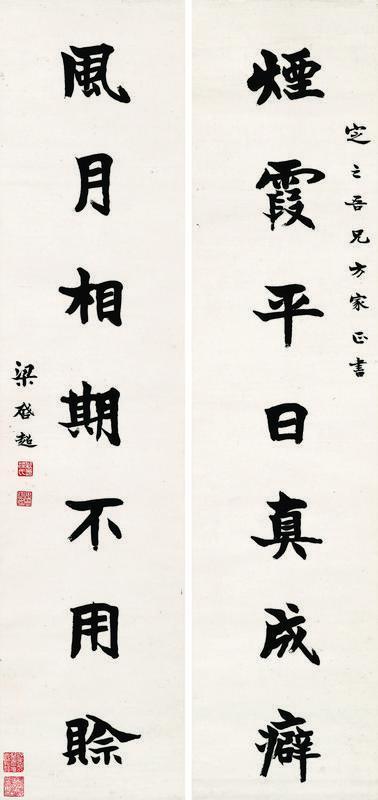 定之吾兄方家正書
煙霞平日真成癖
風月相期不用賒
梁啓超